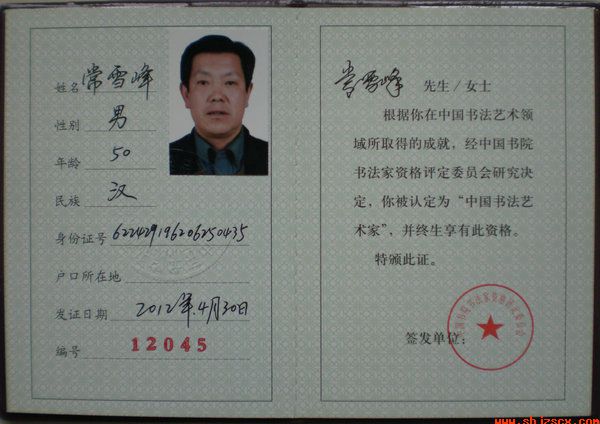 姓名 常雪峰
性别 男
年龄 50
民族 汉
身份证号 622429196206250435
户口所在地
发证日期 2012年.4月30日
编号 12045
常雪峰 先生/女士
根据你在中国书法艺术领
域所取得的成就，经中国书院
书法家资格评定委员会研究决
定，你被认定为“中国书法艺
术家”，并终生享有此资格。
特颁此证。
中国书院书法家资格评定委员会
签发单位：
www.shjzscx.com